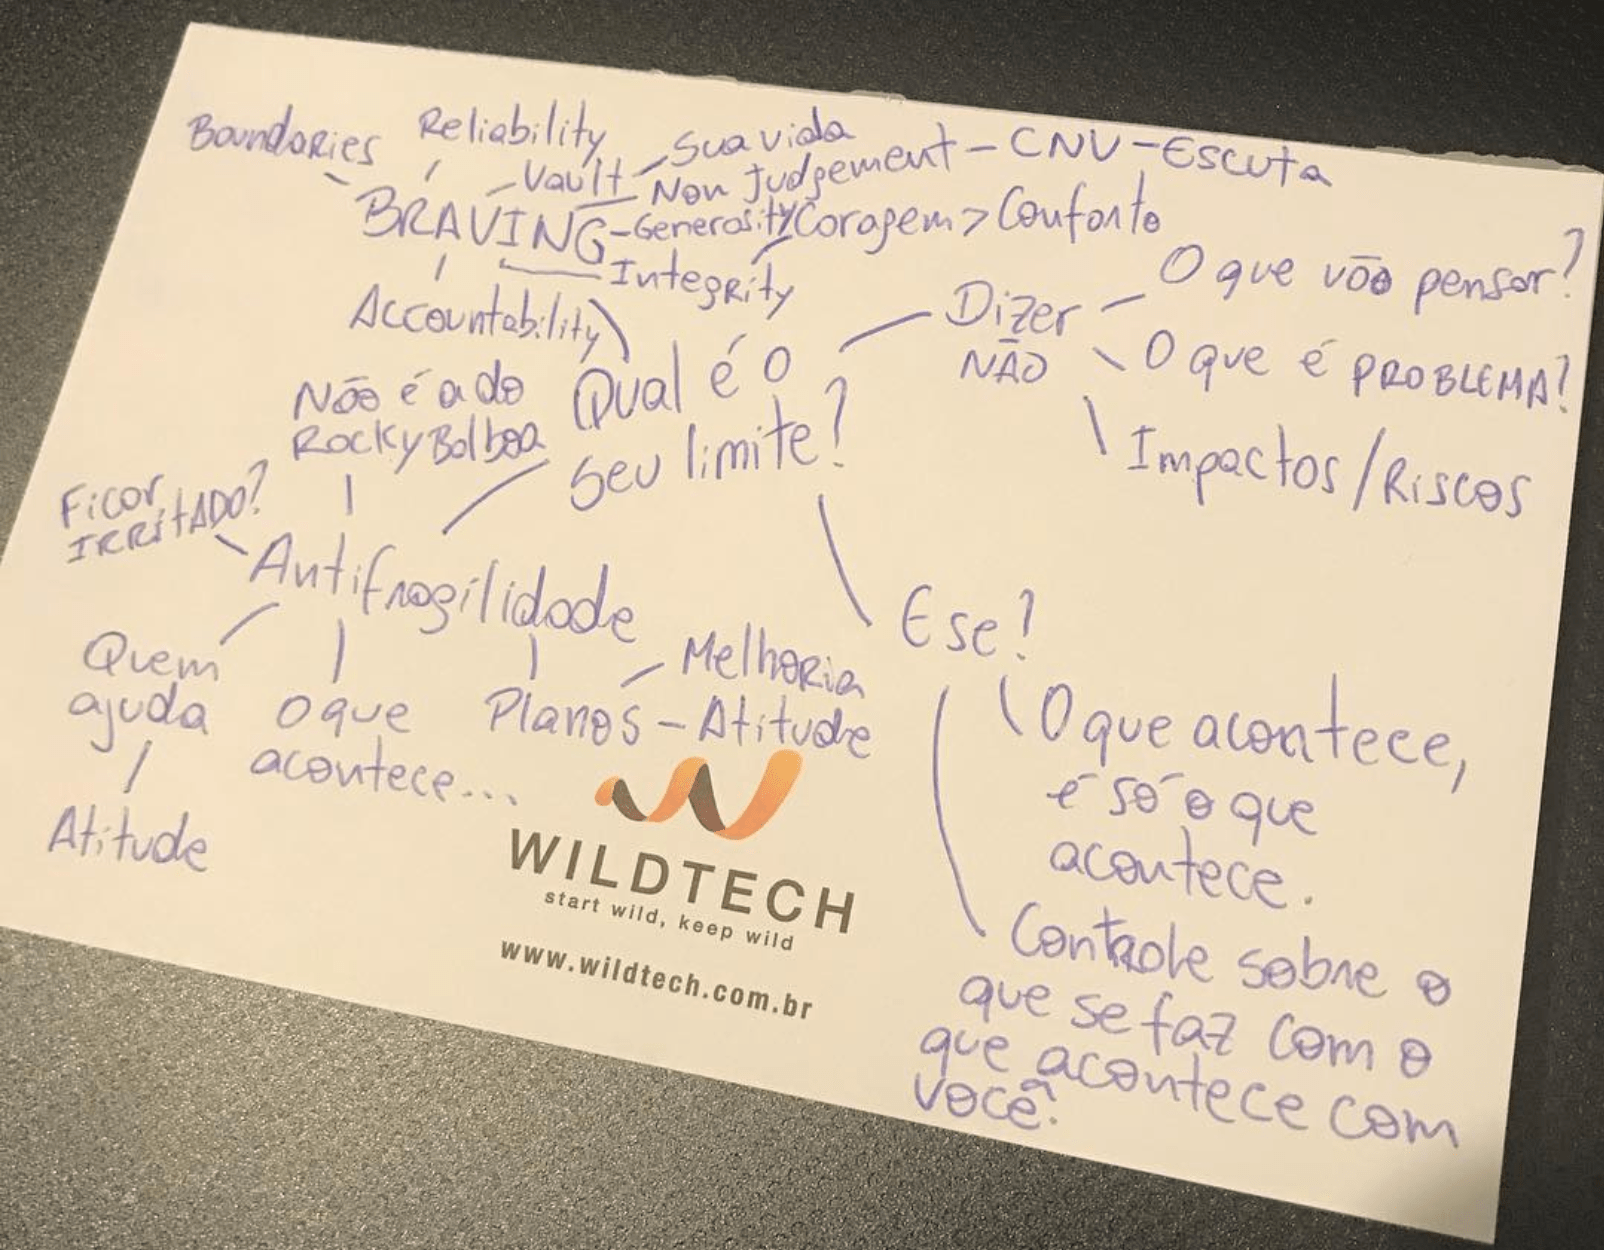 Boundaries
Reliability
Vault - Sua vida
Non Judgement - CNV - Escuta
BRAVING - Generosity
Coragem > Conforto
Integrity
Accountability
Qual é o
seu limite?
Dizer
NÃO
O que vão pensar?
O que é PROBLEMA?
Impactos/Riscos
Não é a do
Rocky Bolboa
Ficar
IRRITADO?
Antifragilidade
Quem
ajuda
Atitude
o que
acontece...
Planos - Atitude
Melhoria
E se?
O que acontece,
é só o que
acontece.
Controle sobre o
que se faz com o
que acontece com
você?
WILDTECH
start wild, keep wild
www.wildtech.com.br